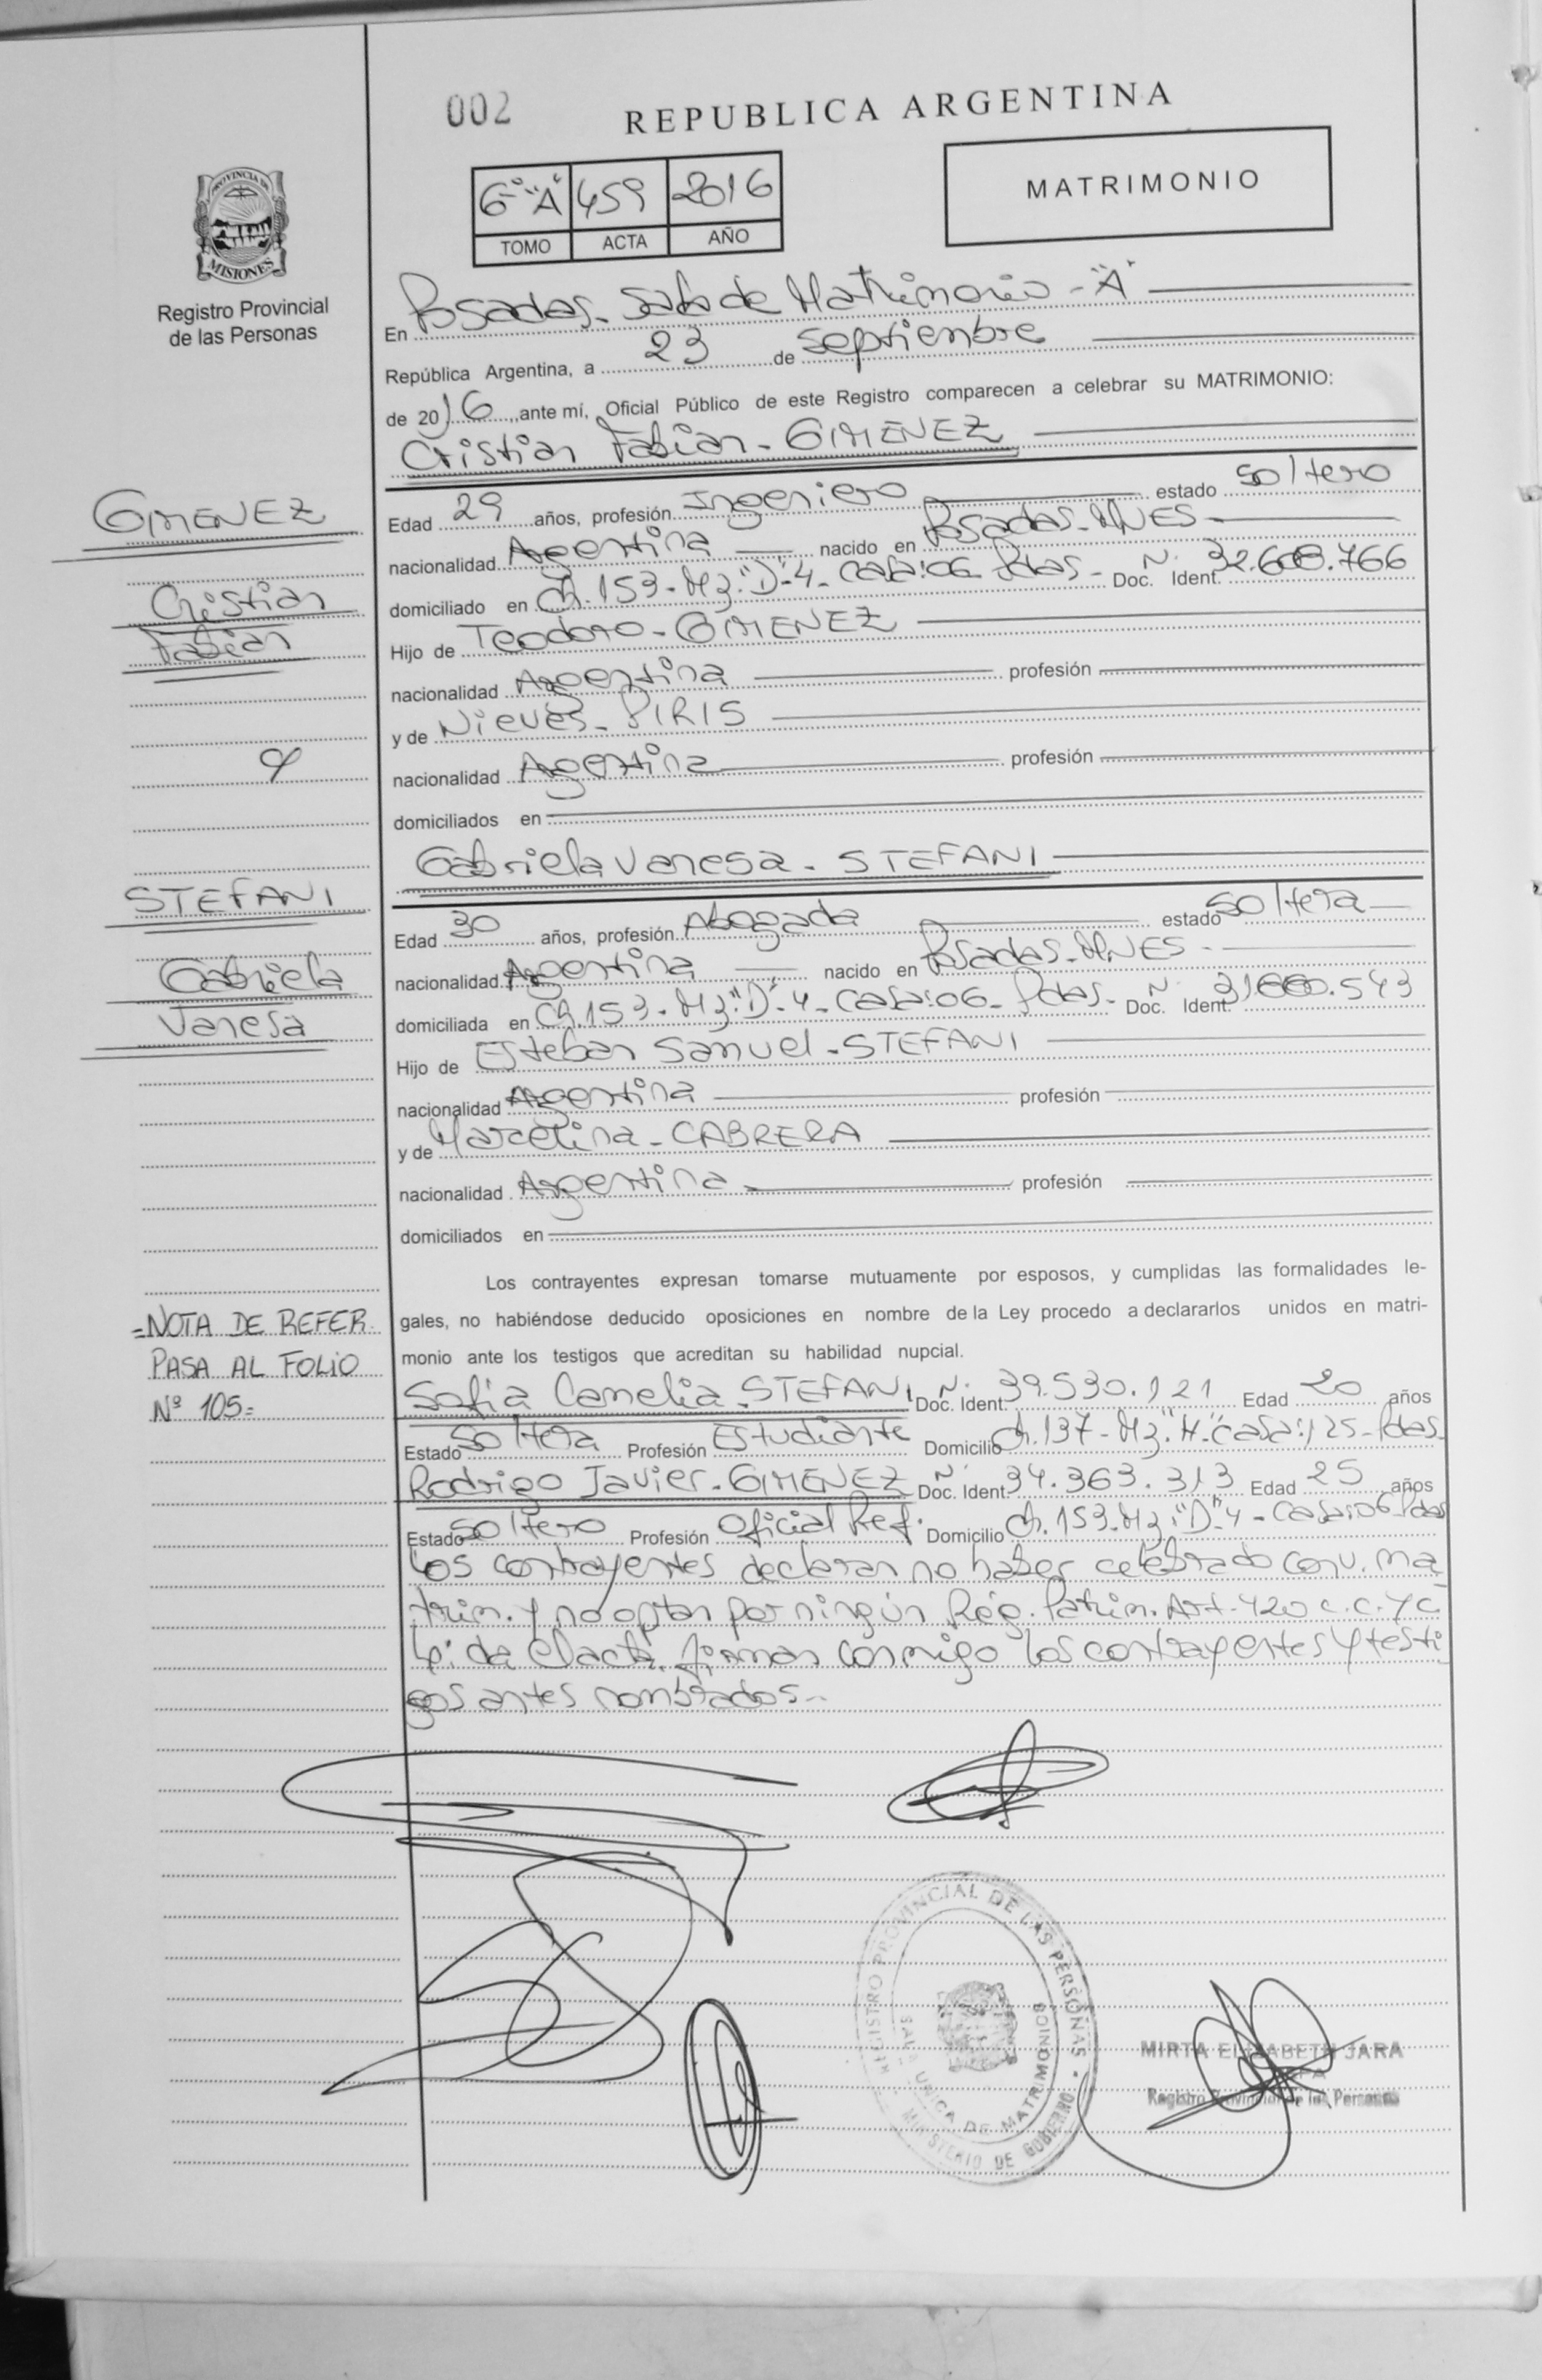 002
REPUBLICA ARGENTINA
6º "A" 459 2016
TOMO ACTA AÑO
MATRIMONIO
PROVINCIA DE
MISIONES
Registro Provincial
de las Personas
En Posadas - Sala de Matrimonio - "A"
República Argentina, a 23 de Septiembre
de 2016, ante mí, Oficial Público de este Registro comparecen a celebrar su MATRIMONIO:
Cristian Fabian - GIMENEZ
GIMENEZ
Cristian
Fabian
Edad 29 años, profesión Ingeniero estado soltero
nacionalidad Argentina nacido en Posadas - MNES -
domiciliado en Ch. 153 - Mz: "D" - 4 - casa: 06 - Pdas - Doc. Ident. Nº 32.608.766
Hijo de Teodoro - GIMENEZ
nacionalidad Argentina profesión
y de Nieves - PIRIS
y
nacionalidad Argentina profesión
domiciliados en
Gabriela Vanesa - STEFANI
STEFANI
Gabriela
Vanesa
Edad 30 años, profesión Abogada estado soltera
nacionalidad Argentina nacido en Posadas - MNES -
domiciliada en Ch. 153 - Mz: "D" - 4 - casa: 06 - Pdas - Doc. Ident. Nº .543
Hijo de Esteban Samuel - STEFANI
nacionalidad Argentina profesión
y de Marcelina - CABRERA
nacionalidad Argentina profesión
domiciliados en
Los contrayentes expresan tomarse mutuamente por esposos, y cumplidas las formalidades le-
gales, no habiéndose deducido oposiciones en nombre de la Ley procedo a declararlos unidos en matri-
monio ante los testigos que acreditan su habilidad nupcial.
=NOTA DE REFER.
PASA AL FOLIO
Nº 105=
Sofia Camelia - STEFANI Doc. Ident. Nº 39.530.121 Edad 20 años
Estado soltera Profesión Estudiante Domicilio Ch. 137 - Mz "H" - casa: 125 - Pdas -
Rodrigo Javier - GIMENEZ Doc. Ident. Nº 34.363.313 Edad 25 años
Estado soltero Profesión Oficial Ref. Domicilio Ch. 153 - Mz: "D" - 4 - casa: 06 - Pdas
Los contrayentes declaran no haber celebrado conv. ma
trim. y no optan por ningún Rég. Patrim. Art. 420 C.C.Y C
Leída el acta, firman conmigo los contrayentes y testi
gos antes nombrados.-
REGISTRO PROVINCIAL DE LAS PERSONAS
SALA UNICA DE MATRIMONIOS
MINISTERIO DE GOBIERNO
MIRTA ELIZABETH JARA
Registro Provincial de las Personas